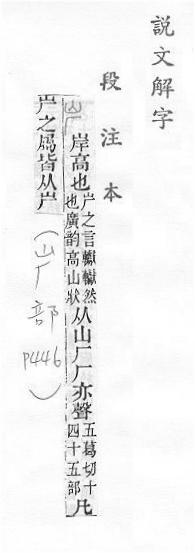 說文解字
段注本
屵 岸高也屵之言巘巘然也廣韵高山狀从山厂厂亦聲五葛切十四十五部凡
屵之屬皆从屵
(山厂部
P446)